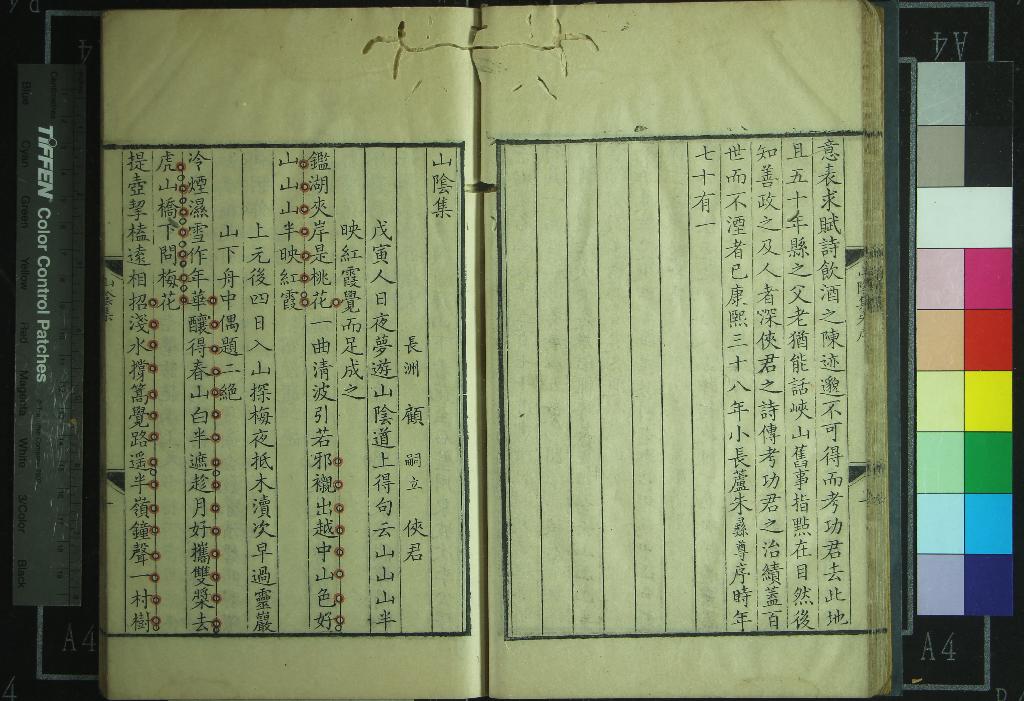 意表求賦詩飲酒之陳迹邈不可得而考功君去此地
且五十年縣之父老猶能話峽山舊事指點在目然後
知善政之及人者深俠君之詩傳考功君之治績蓋百
世而不湮者已康熙三十八年小長蘆朱彝尊序時年
七十有一
山陰集
長洲 顧 嗣立 俠君
戊寅人日夜夢遊山陰道上得句云山山山半
映紅霞覺而足成之
鑑湖夾岸是桃花一曲清波引若邪襯出越中山色好
山山山半映紅霞
上元後四日入山探梅夜抵木瀆次早過靈巖
山下舟中偶題二絕
冷煙濕雪作年華釀得春山白半遮趁月好攜雙槳去
虎山橋下問梅花
提壺挈榼遠相招淺水撐篙覺路遥半嶺鐘聲一村樹
山陰集
TIFFEN Color Control Patches
Blue Cyan Green Yellow Red Magenta White 3/Color Black
A4
A4
A4
A4